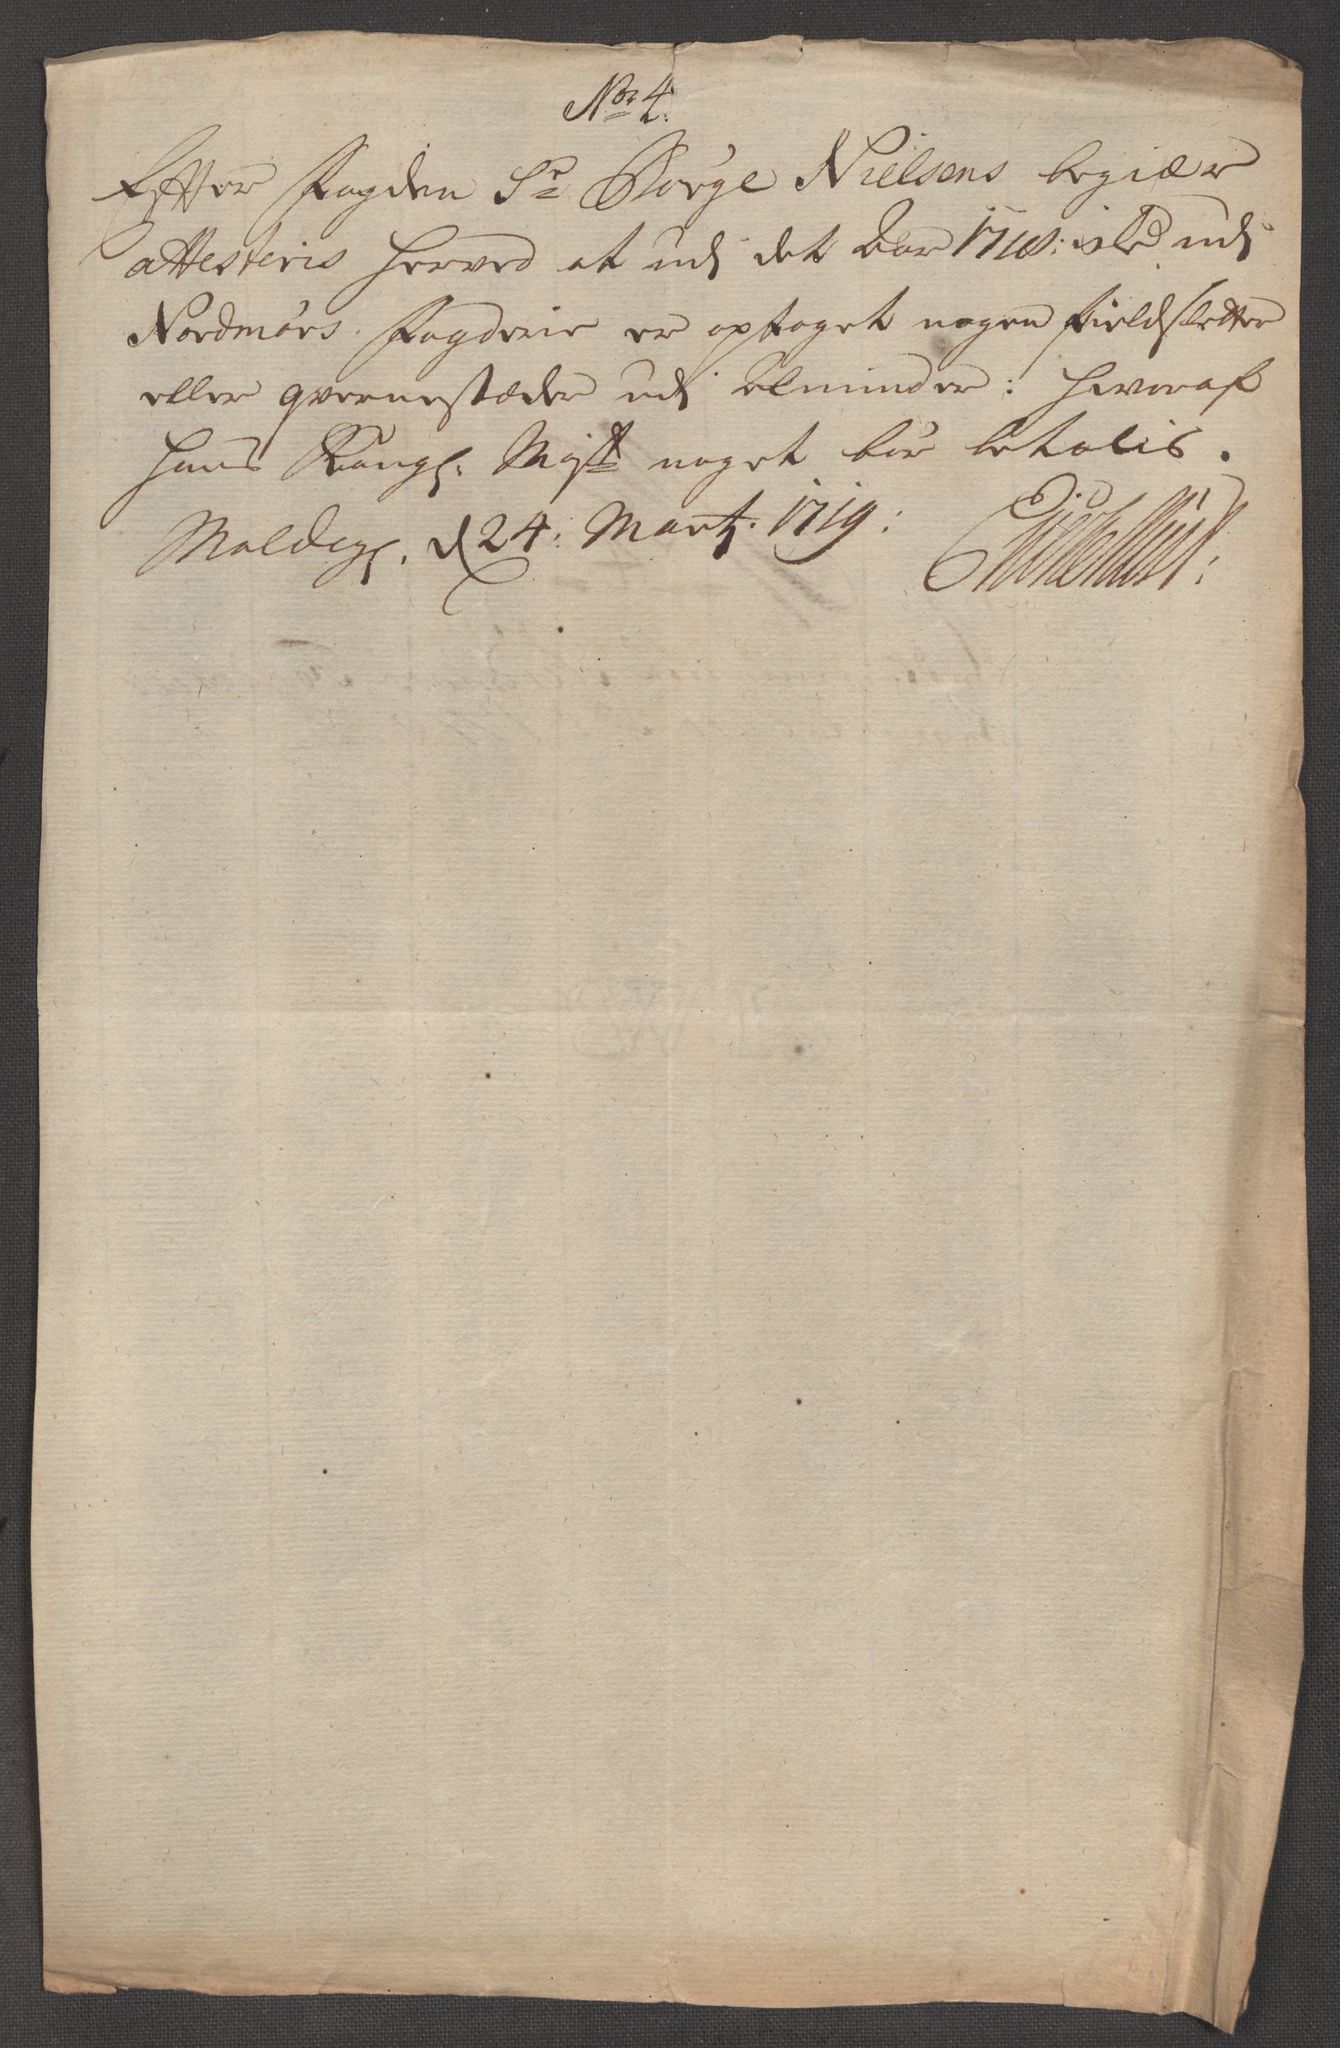 No. 4.
Effter Fogden Sr. Børge Nielsens begiær
attesteris herved at udj det Aar 1718: icke udj
Nordmørs Fogderie er optaget nogen fieldsletter
eller qvernestæder udj Alminder: hvoraf
hans Kongl: Mayst: noget bør betalis.
Moldegl. d 24: Martj. 1719: